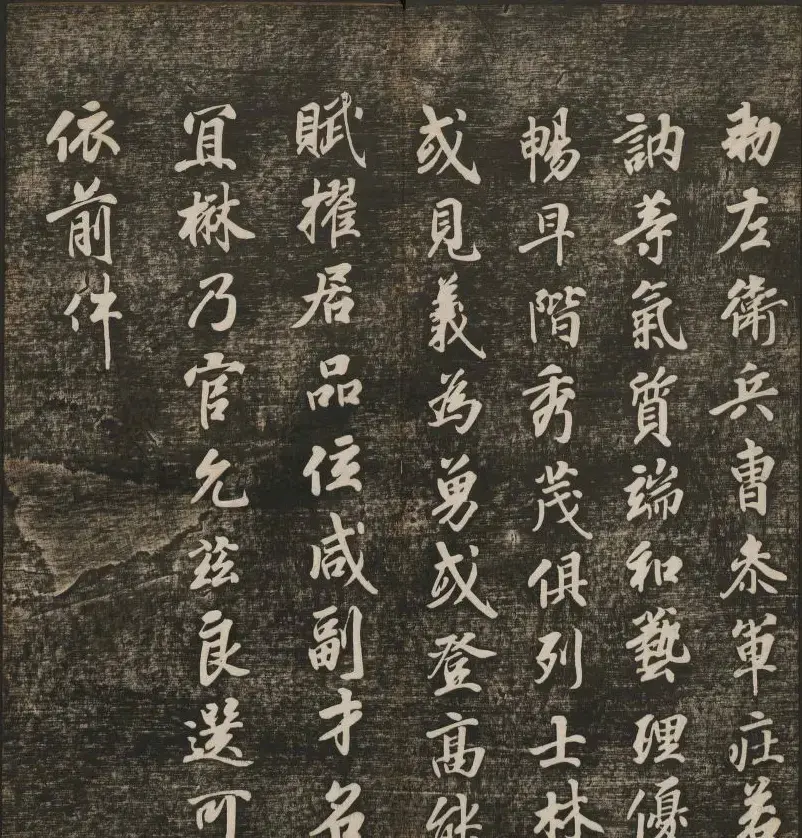 勅左衛兵曹叅軍莊若
訥等氣質端和藝理優
暢早階秀茂俱列士林
或見義為勇或登高能
賦擢居品位咸副才名
宜楙乃官允茲良選可
依前件